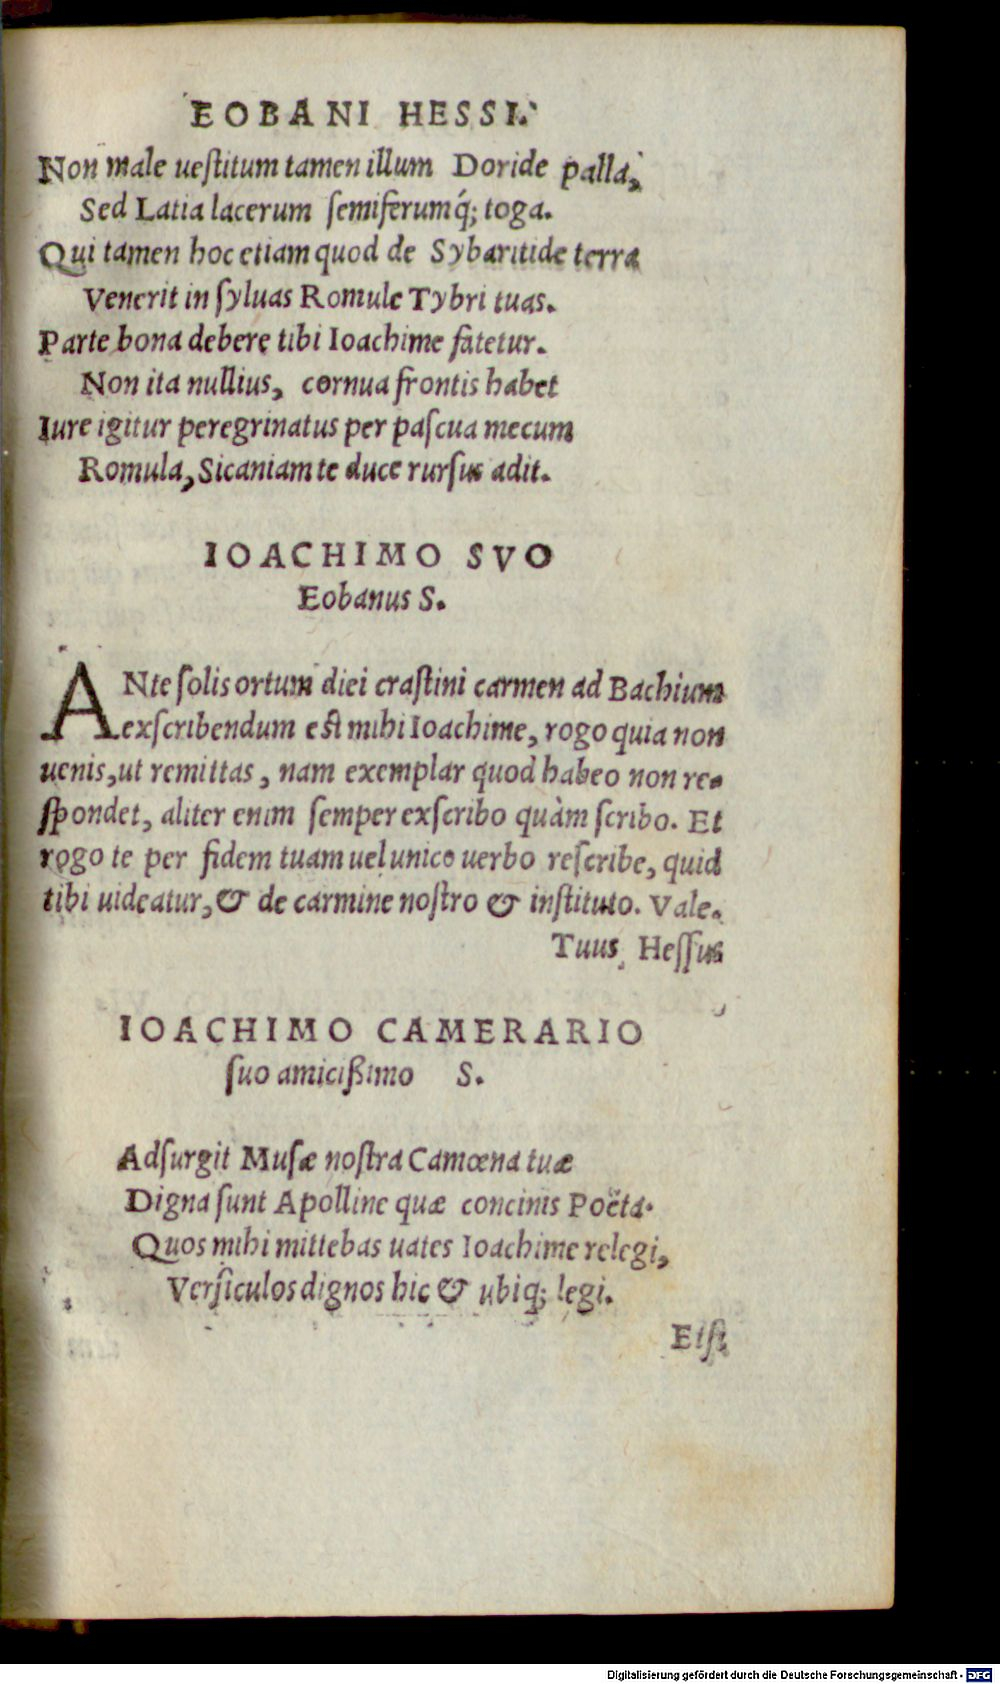 EOBANI HESSI.
Non male ueſtitum tamen illum Doride palla,
Sed Latia lacerum ſemiferumq́; toga.
Qui tamen hoc etiam quod de Sybaritide terra
Venerit in ſyluas Romule Tybri tuas.
Parte bona debere tibi Ioachime fatetur.
Non ita nullius, cornua frontis habet
Iure igitur peregrinatus per paſcua mecum
Romula, Sicaniam te duce rurſus adit.
IOACHIMO SVO
Eobanus S.
ANte ſolis ortum diei craſtini carmen ad Bachium
exſcribendum eſt mihi Ioachime, rogo quia non
uenis, ut remittas, nam exemplar quod habeo non re-
ſpondet, aliter enim ſemper exſcribo quàm ſcribo. Et
rogo te per fidem tuam uel unico uerbo reſcribe, quid
tibi uideatur, & de carmine noſtro & inſtituto. Vale.
Tuus Heſſus
IOACHIMO CAMERARIO
ſuo amicißimo S.
Adſurgit Muſæ noſtra Camœna tuæ
Digna ſunt Apolline quæ concinis Poëta.
Quos mihi mittebas uates Ioachime relegi,
Verſiculos dignos hic & ubiq; legi.
Etſi
Digitalisierung gefördert durch die Deutsche Forschungsgemeinschaft - DFG